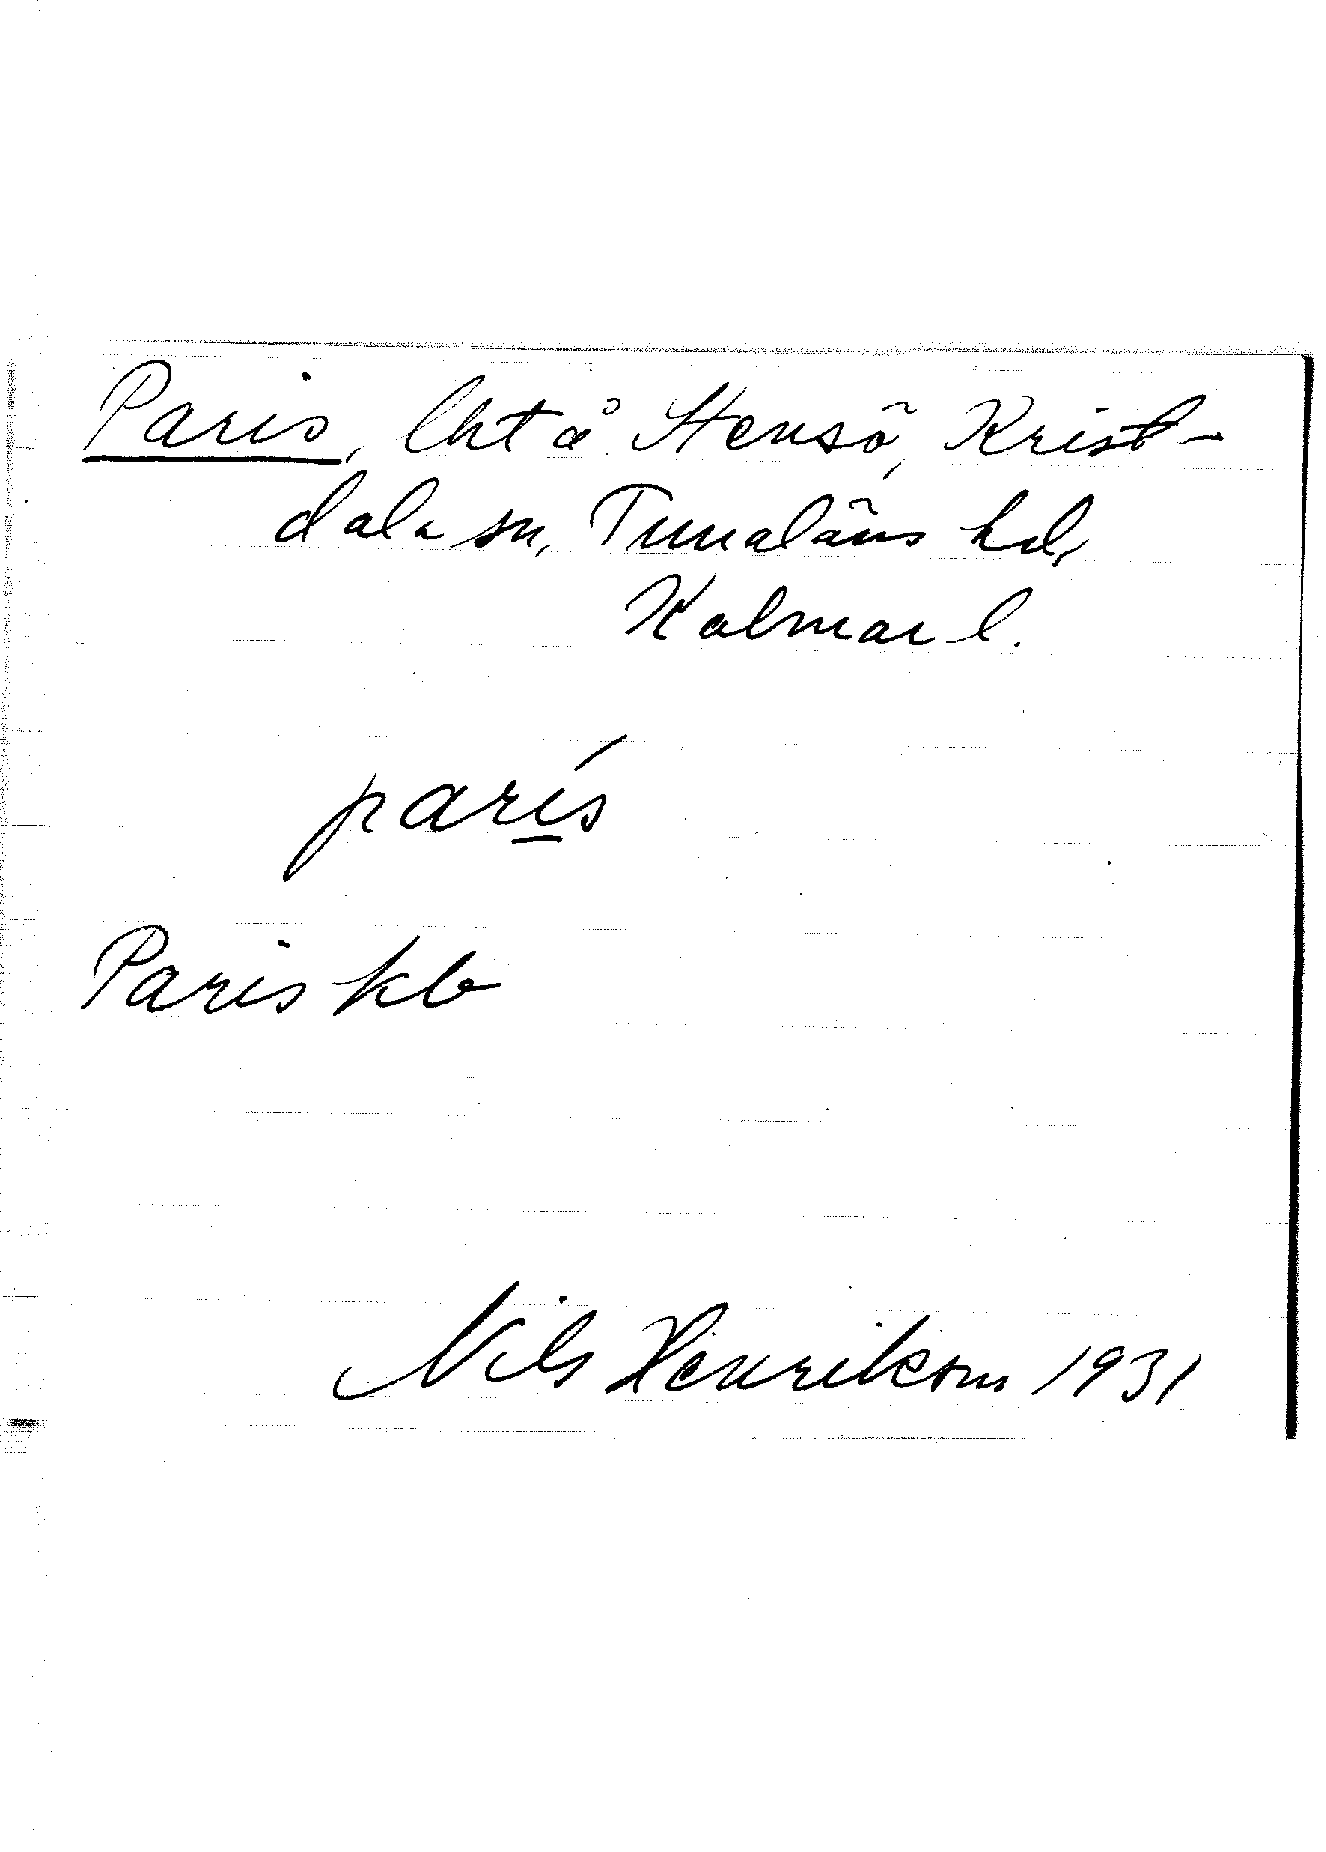 Paris, lht å Stensö, Krist-
dala sn, Tunaläns hd,
Kalmar l.
parís
Paris kb
Nils Henrikson 1931